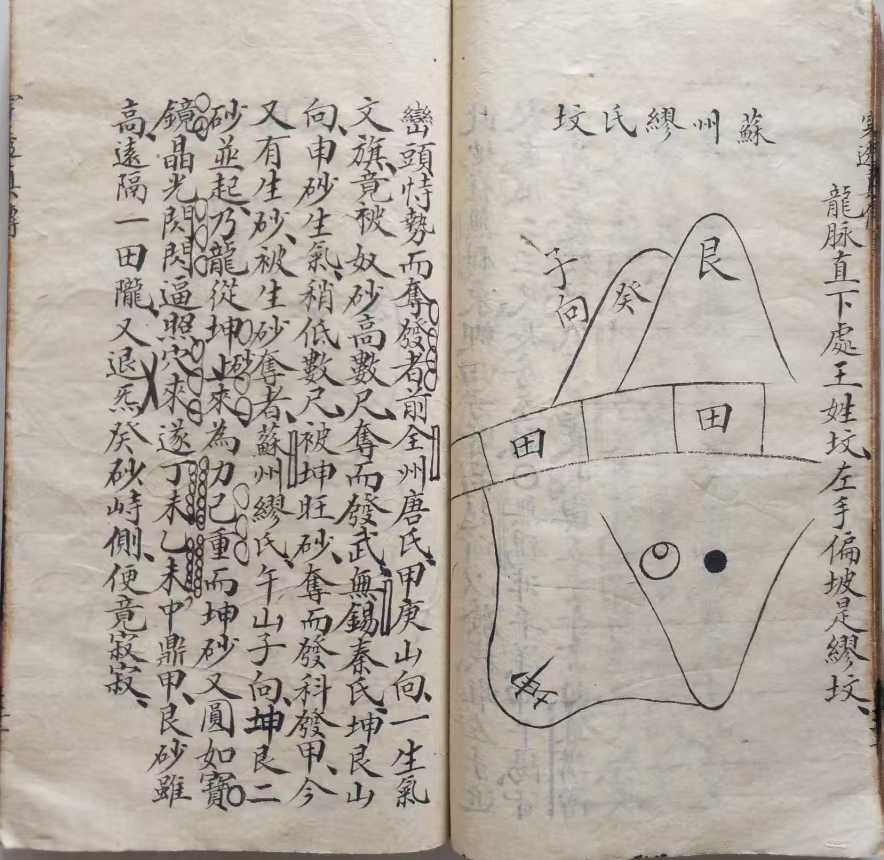 蘇州繆氏坟
龍脉直下處王姓坟、左手偏坡是繆坟、
艮
癸
子向
田
田
巒頭恃勢而奪發者前全州唐氏甲庚山向、一生氣
文旗、竟被奴砂高數尺、奪而發武、無錫秦氏、坤艮山
向、申砂生氣、稍低數尺、被坤旺砂、奪而發科發甲、今
又有生砂、被生砂奪者、蘇州繆氏、午山子向、坤艮二
砂並起、乃龍從坤砂上來為力已重而坤砂又圓如寶
鏡、晶光閃閃逼照穴來、遂丁未乙未中鼎甲、艮砂雖
高、遠隔一田隴、又退炁癸砂峙側、便竟寂寂、